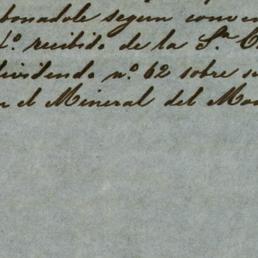 bonadole segun conve
1.º recibido de la S.ra C
dividendo nº 62 sobre s
n el Mineral del Mo